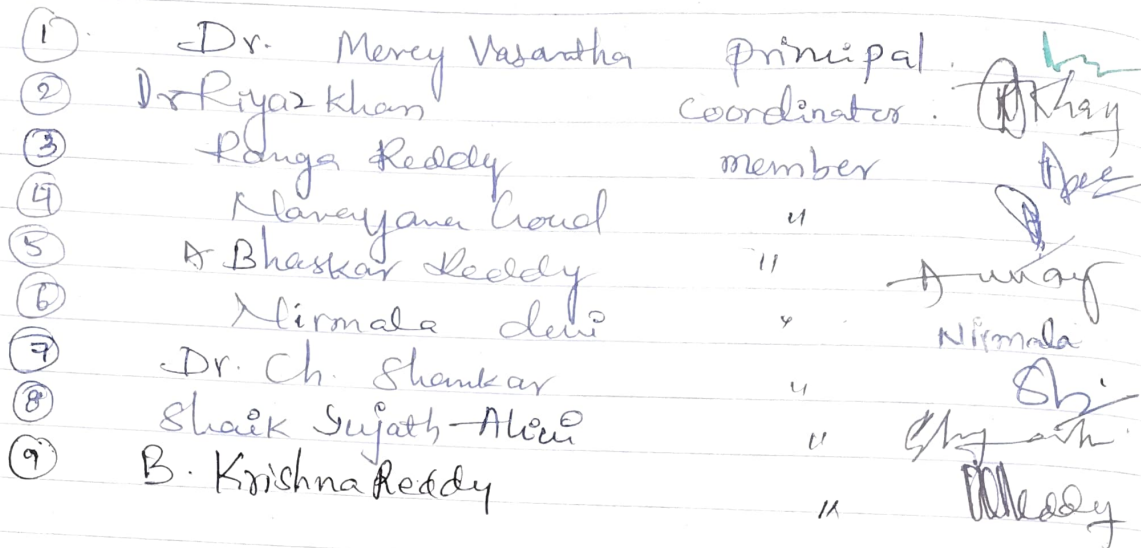 ① Dr. Mercy Vasantha principal.
② Dr Riyaz Khan coordinator. Khay
③ Ranga Reddy member
④ Narayana Goud "
⑤ A Bhaskar Reddy "
⑥ Nirmala devi " Nirmala
⑦ Dr. Ch. Shankar "
⑧ Shaik Sujath "
⑨ B. Krishna Reddy " Reddy